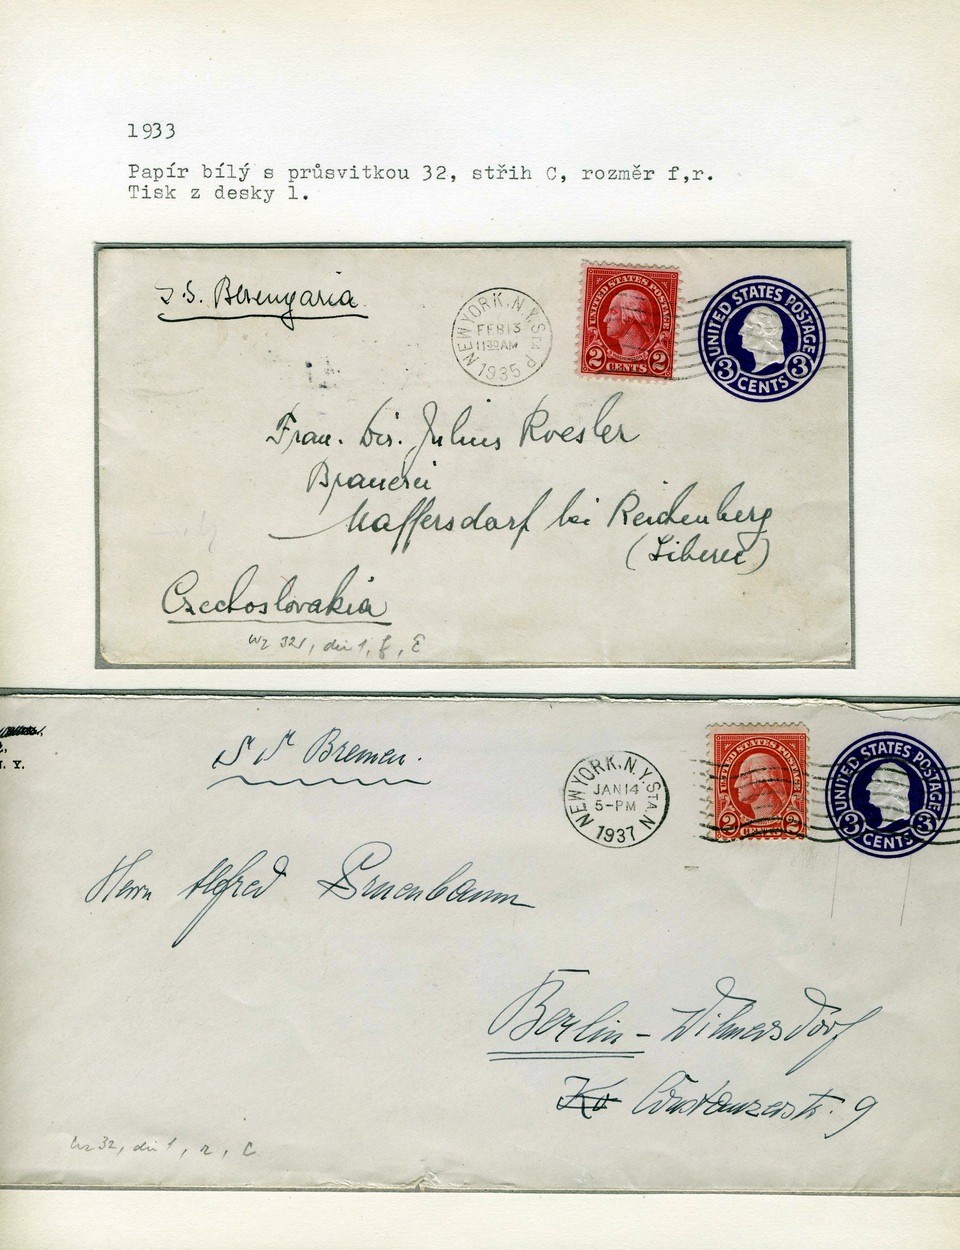 1933
Papír bílý s průsvitkou 32, střih C, rozměr f,r.
Tisk z desky 1.
S.S. Berengaria
NEW YORK, N.Y. STA P
FEB 13
11 30 AM
1935
UNITED STATES POSTAGE
2 CENTS 2
UNITED STATES POSTAGE
3 CENTS 3
Frau. Dir. Julius Roesler
Brauerei
Maffersdorf bei Reichenberg
(Liberec)
Czechoslovakia
wz 32, die 1, f,
N. Y.
S S Bremen.
NEW YORK, N.Y. STA. N
JAN 14
5-PM
1937
UNITED STATES POSTAGE
2 CENTS 2
UNITED STATES POSTAGE
3 CENTS 3
Herrn Alfred
Berlin - Wilmersdorf
Constanzerstr. 9
wz 32, die 1, r, C